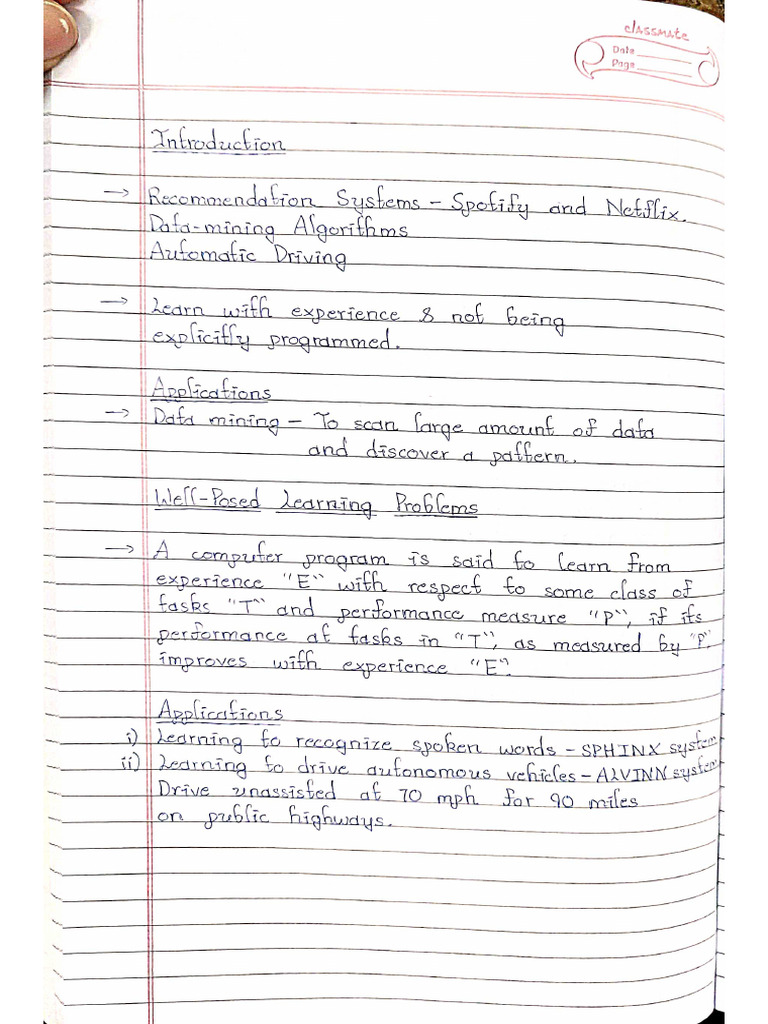 classmate
Date
Page
Introduction
→ Recommendation Systems - Spotify and Netflix.
Data-mining Algorithms
Automatic Driving
→ Learn with experience & not being
explicitly programmed.
Applications
→ Data mining - To scan large amount of data
and discover a pattern.
Well-Posed Learning Problems
→ A computer program is said to learn from
experience "E" with respect to some class of
tasks "T" and performance measure "P", if its
performance at tasks in "T", as measured by "P"
improves with experience "E".
Applications
i) Learning to recognize spoken words - SPHINX system
ii) Learning to drive autonomous vehicles - ALVINN system
Drive unassisted at 70 mph for 90 miles
on public highways.